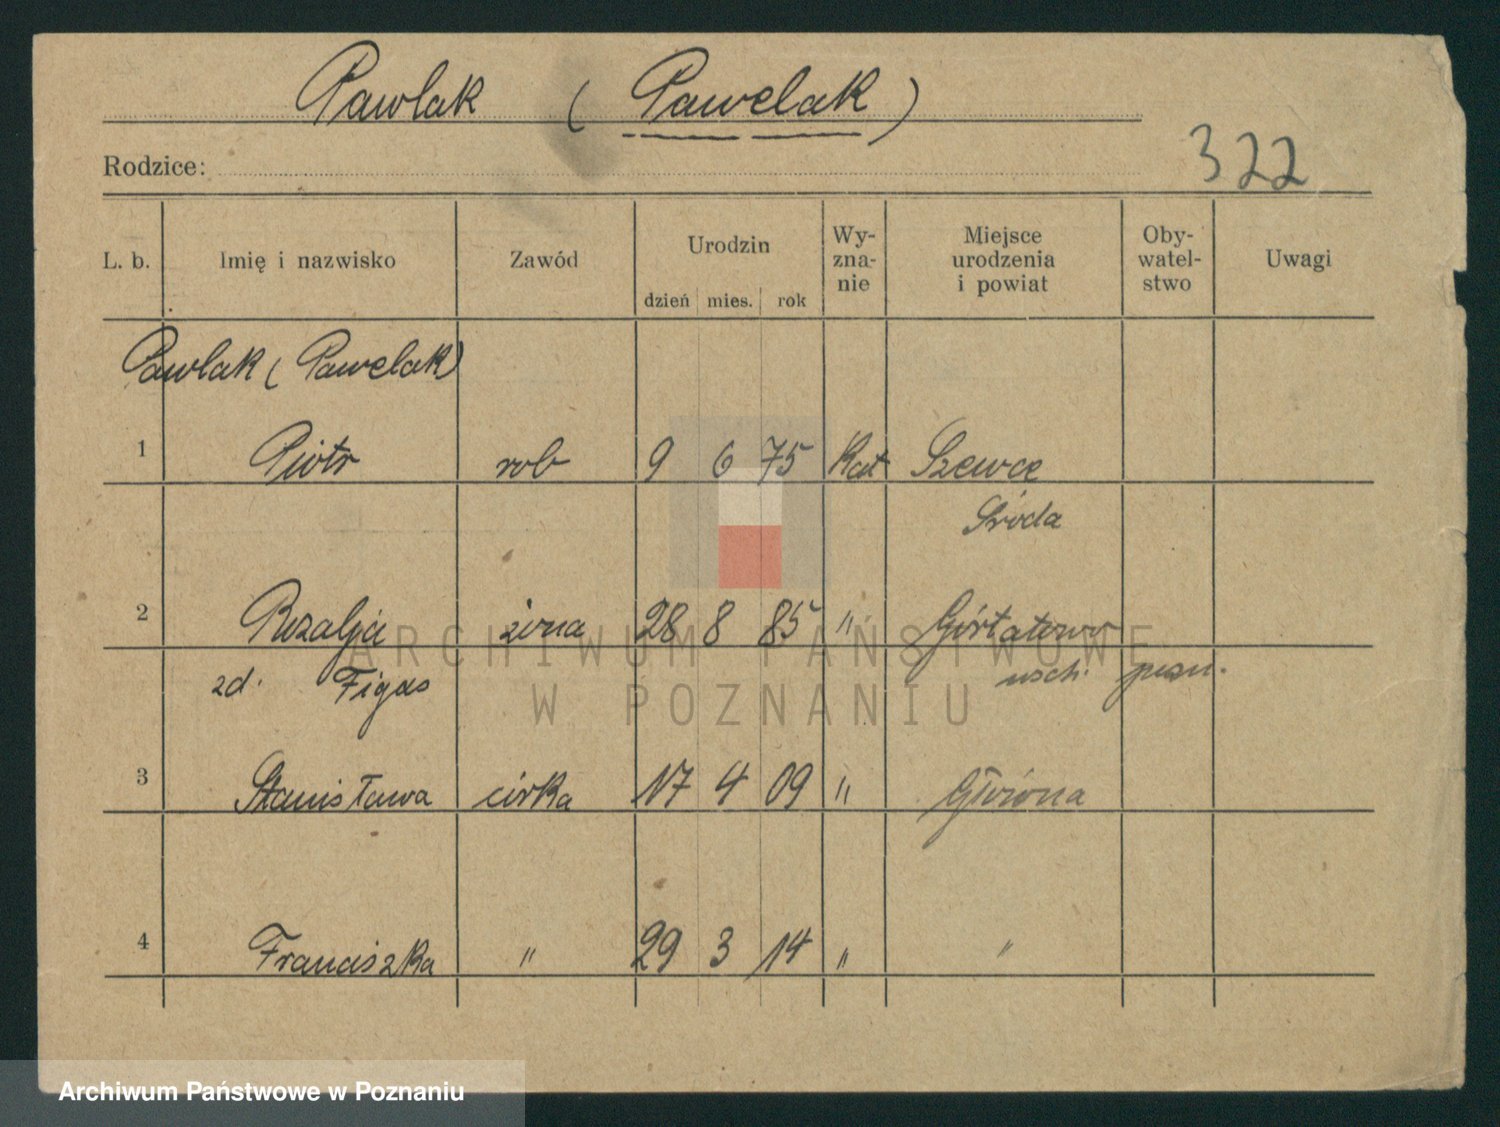 Pawlak ( Pawelak )
322
Rodzice:
L. b. Imię i nazwisko Zawód Urodzin dzień mies. rok Wy- zna- nie Miejsce urodzenia i powiat Oby- watel- stwo Uwagi
Pawlak ( Pawelak)
1 Piotr rob 9 6 75 Kat Szewce
Środa
2 Rozalja żona 28 8 85 " Górtatowo
zd. Figas wsch. pozn.
3 Stanisława córka 17 4 09 " Główna
4 Franciszka " 29 3 14 " "
ARCHIWUM PAŃSTWOWE
W POZNANIU
Archiwum Państwowe w Poznaniu